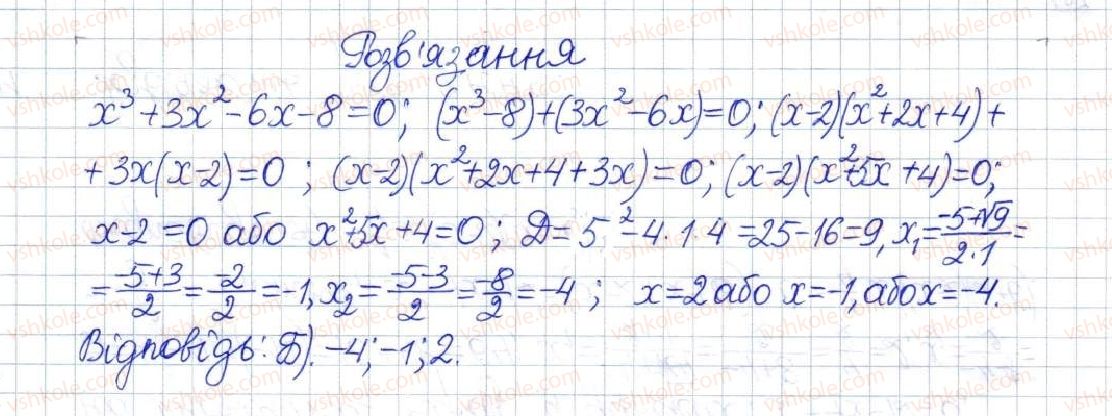 Розв'язання
x³+3x²-6x-8=0; (x³-8)+(3x²-6x)=0; (x-2)(x²+2x+4)+
+3x(x-2)=0 ; (x-2)(x²+2x+4+3x)=0; (x-2)(x²+5x+4)=0;
x-2=0 або x²+5x+4=0; Д=5²-4·1·4=25-16=9, x₁=(-5+√9)/(2·1)=
=(-5+3)/2=(-2)/2=-1, x₂=(-5-3)/2=(-8)/2=-4 ; x=2 або x=-1, або x=-4.
Відповідь: Б). -4; -1; 2.